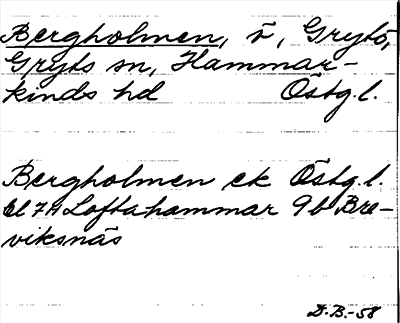 Bergholmen, ö, Grytö,
Gryts sn, Hammar-
kinds hd Östg.l.
Bergholmen ek Östg.l.
bl 7A Loftahammar 9b Bre-
viksnäs
D.B.-58